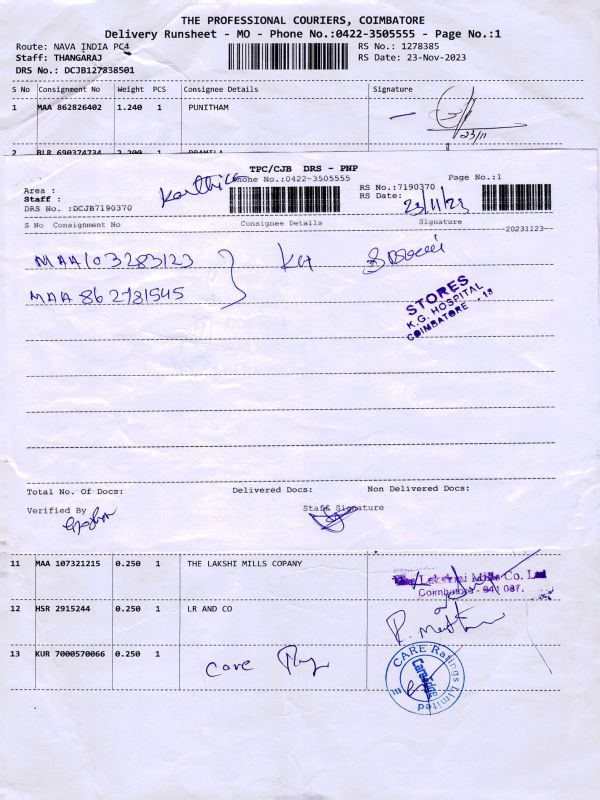 THE PROFESSIONAL COURIERS, COIMBATORE
Delivery Runsheet - MO - Phone No.:0422-3505555 - Page No.:1
Route: NAVA INDIA PC4 RS No.: 1278385
Staff: THANGARAJ RS Date: 23-Nov-2023
DRS No.: DCJB127838501
S No Consignment No Weight PCS Consignee Details Signature
1 MAA 862826402 1.240 1 PUNITHAM
23/11
2 BLR 690374734 2.200 1 PRAMILA
TPC/CJB DRS - PNP
Phone No.:0422-3505555 Page No.:1
Area : Karthick RS No.:7190370
Staff : RS Date: 23/11/23
DRS No. :DCJB7190370
S No Consignment No Consignee Details Signature
20231123
MAA103283123 KG
MAA 862781545
STORES
K.G. HOSPITAL
COIMBATORE - 18
Total No. Of Docs: Delivered Docs: Non Delivered Docs:
Verified By Staff Signature
11 MAA 107321215 0.250 1 THE LAKSHI MILLS COPANY
The Lakshmi Mills Co. Ltd
Coimbatore - 641 037.
12 HSR 2915244 0.250 1 LR AND CO
13 KUR 7000570066 0.250 1 Care
CARE Ratings Limited